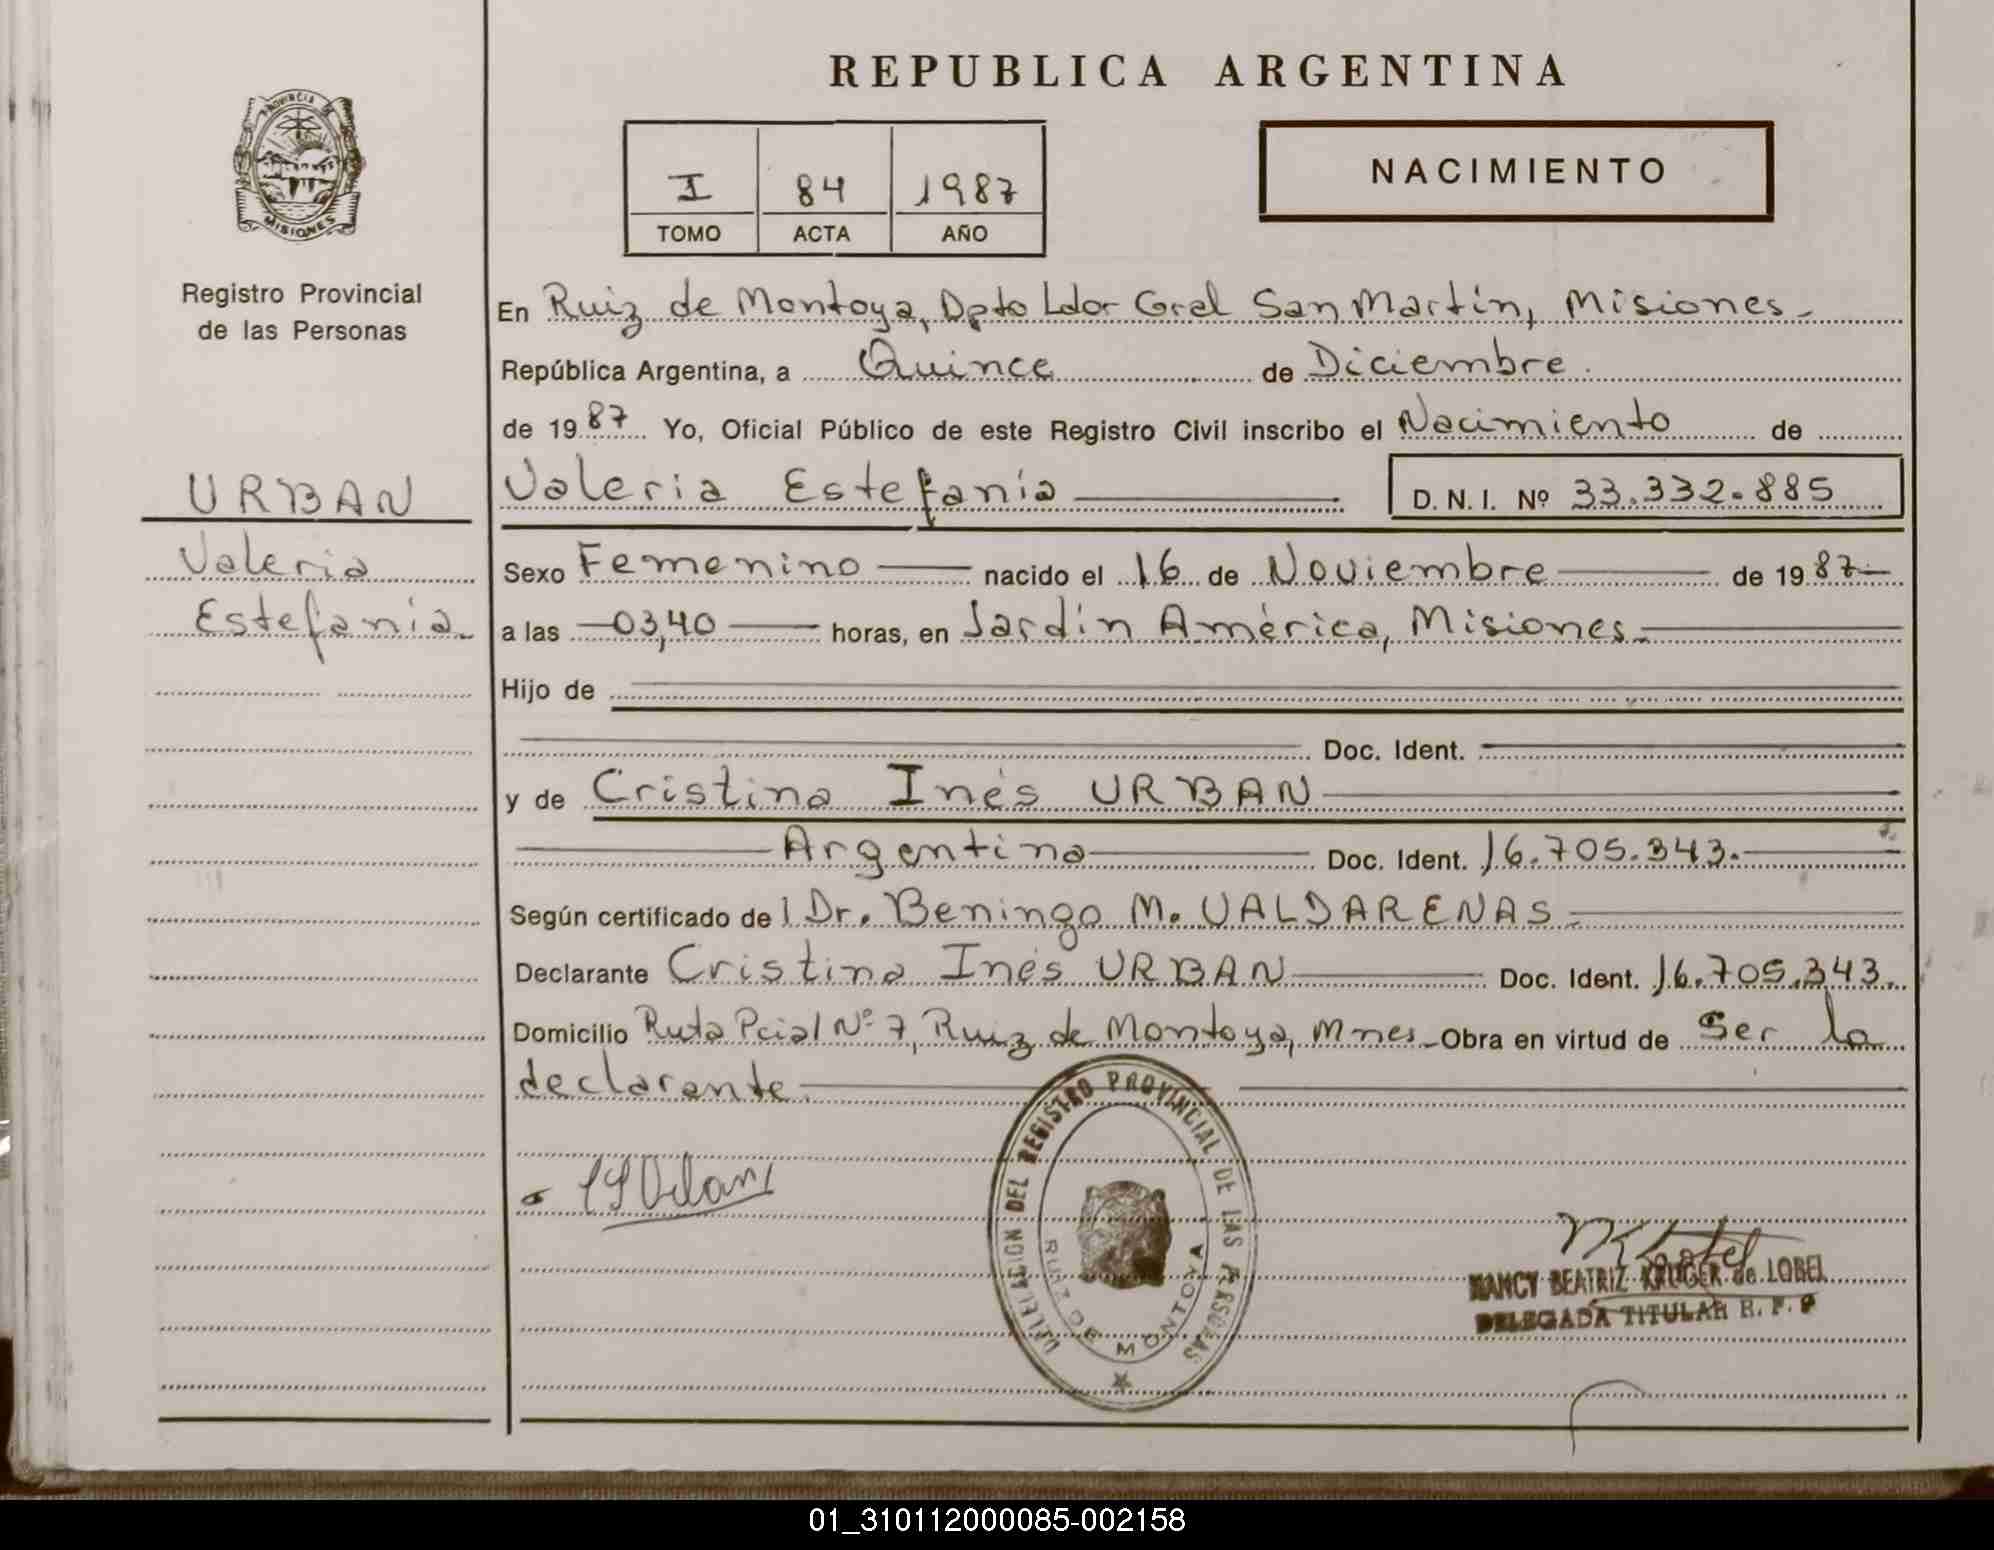 REPUBLICA ARGENTINA
PROVINCIA DE
MISIONES
Registro Provincial
de las Personas
I 84 1987
TOMO ACTA AÑO
NACIMIENTO
En Ruiz de Montoya, Dpto Ldor Gral San Martín, Misiones-
República Argentina, a Quince de Diciembre.
de 1987 Yo, Oficial Público de este Registro Civil inscribo el Nacimiento de
URBAN
Valeria
Estefanía-
Valeria Estefanía D. N. I. Nº 33.332.885
Sexo Femenino nacido el 16 de Noviembre de 1987-
a las 03,40 horas, en Jardín América, Misiones-
Hijo de
Doc. Ident.
y de Cristina Inés URBAN
Argentina Doc. Ident. 16.705.343.-
Según certificado de l Dr. Beningo M. VALDARENAS-
Declarante Cristina Inés URBAN Doc. Ident. 16.705.343.
Domicilio Ruta Pcial Nº 7, Ruiz de Montoya, Mnes- Obra en virtud de Ser la
declarante.
DELEGACION DEL REGISTRO PROVINCIAL DE LAS PERSONAS
RUIZ DE MONTOYA
NANCY BEATRIZ KRUGER de LOBEL
DELEGADA TITULAR R. P. P
01_310112000085-002158